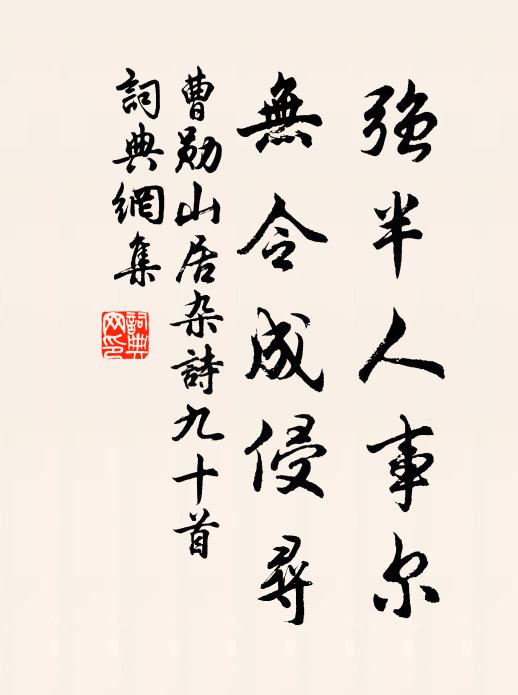 强半人事尔
無令成侵尋
曹勛山居杂詩九十首
詞典網集
詞典
网印